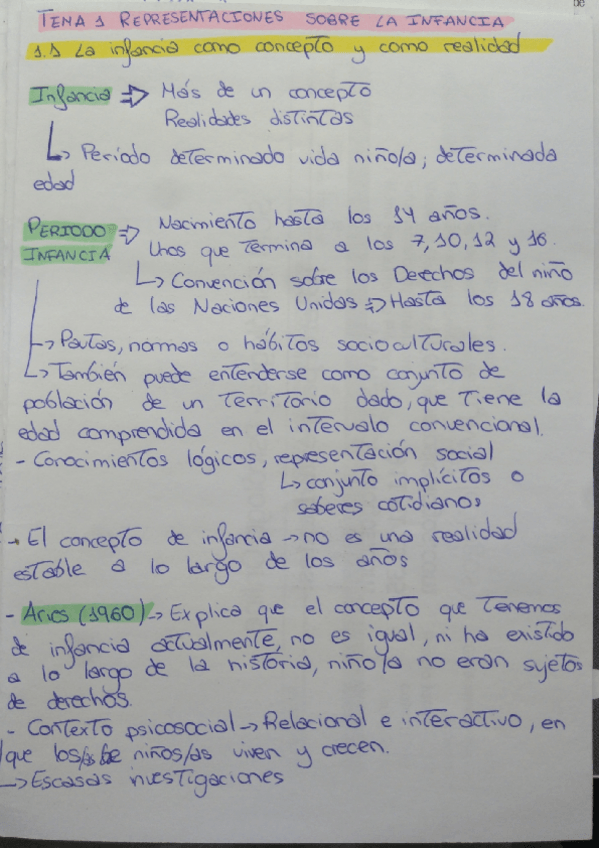 TEMA 1 REPRESENTACIONES SOBRE LA INFANCIA
1.1 La infancia como concepto y como realidad
Infancia => Más de un concepto
Realidades distintas
↳ Período determinado vida niño/a; determinada
edad
PERIODO INFANCIA => Nacimiento hasta los 14 años.
Unos que termina a los 7, 10, 12 y 16.
↳ Convención sobre los Derechos del niño
de las Naciones Unidas => Hasta los 18 años.
→ Pautas, normas o hábitos socioculturales.
↳ También puede entenderse como conjunto de
población de un territorio dado, que tiene la
edad comprendida en el intervalo convencional.
- Conocimientos lógicos, representación social
↳ conjunto implícitos o
saberes cotidianos
→ El concepto de infancia → no es una realidad
estable a lo largo de los años
- Aries (1960) → Explica que el concepto que tenemos
de infancia actualmente, no es igual, ni ha existido
a lo largo de la historia, niño/a no eran sujetos
de derechos.
- Contexto psicosocial → Relacional e interactivo, en
que los/as niños/as viven y crecen.
→ Escasas investigaciones